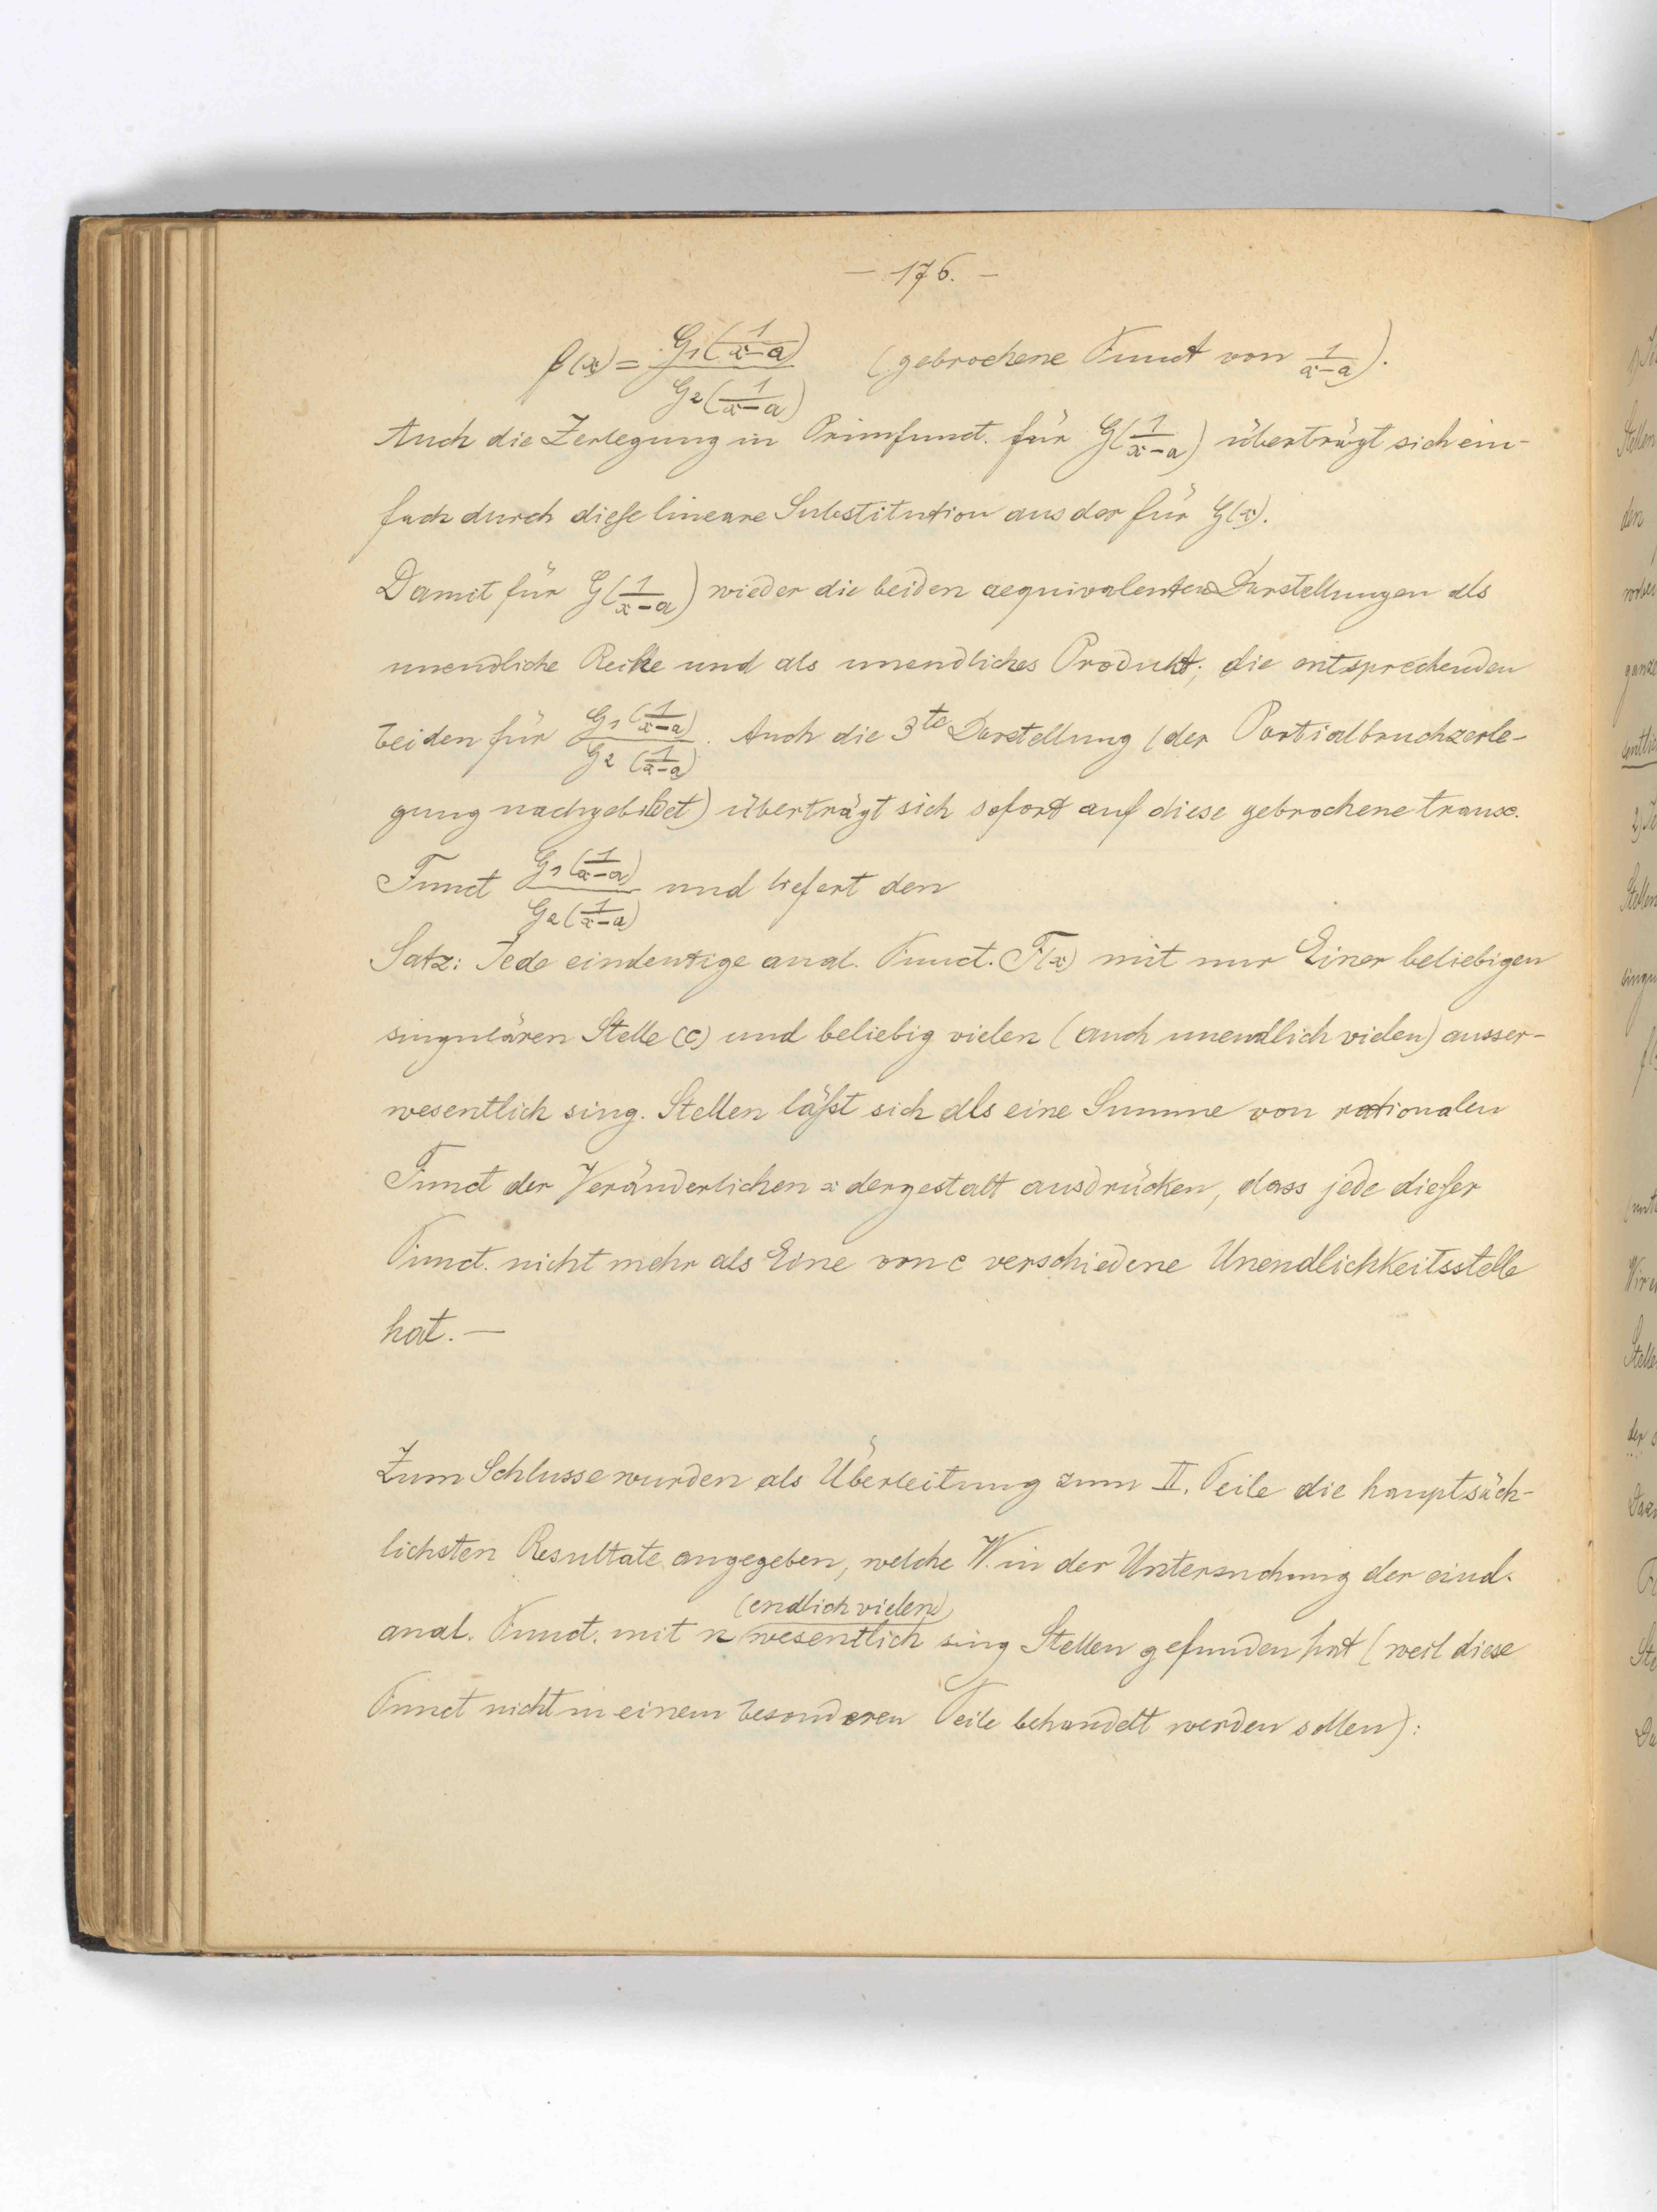 — 176. —
f(x) = G₁(1/(x-a)) / G₂(1/(x-a)) (gebrochene Funct von 1/(x-a)).
Auch die Zerlegung in Primfunct. für G(1/(x-a)) überträgt sich ein-
fach durch dieſe lineare Substitution aus der für G(x).
Damit für G(1/(x-a)) wieder die beiden aequivalenten Darstellungen als
unendliche Reihe und als unendliches Produkt; die entsprechenden
beiden für G₁(1/(x-a)) / G₂(1/(x-a)). Auch die 3te Darstellung (der Partialbruchzerle-
gung nachgebildet) überträgt sich sofort auf diese gebrochene transc.
Funct G₁(1/(x-a)) / G₂(1/(x-a)) und liefert den
Satz: Jede eindeutige anal. Funct. F(x) mit nur Einer beliebigen
singulären Stelle (c) und beliebig vielen (auch unendlich vielen) ausser-
wesentlich sing. Stellen läſst sich als eine Summe von rationalen
Funct der Veränderlichen x dergestalt ausdrücken, dass jede dieſer
Funct. nicht mehr als Eine von c verschiedene Unendlichkeitsstelle
hat. —
Zum Schlusse wurden als Überleitung zum II. Teile die hauptsäch-
lichsten Resultate angegeben, welche W. in der Untersuchung der eind.
(endlich vielen)
anal. Funct. mit n wesentlich sing Stellen gefunden hat (weil diese
Funct nicht in einem besonderen Teile behandelt werden sollen):